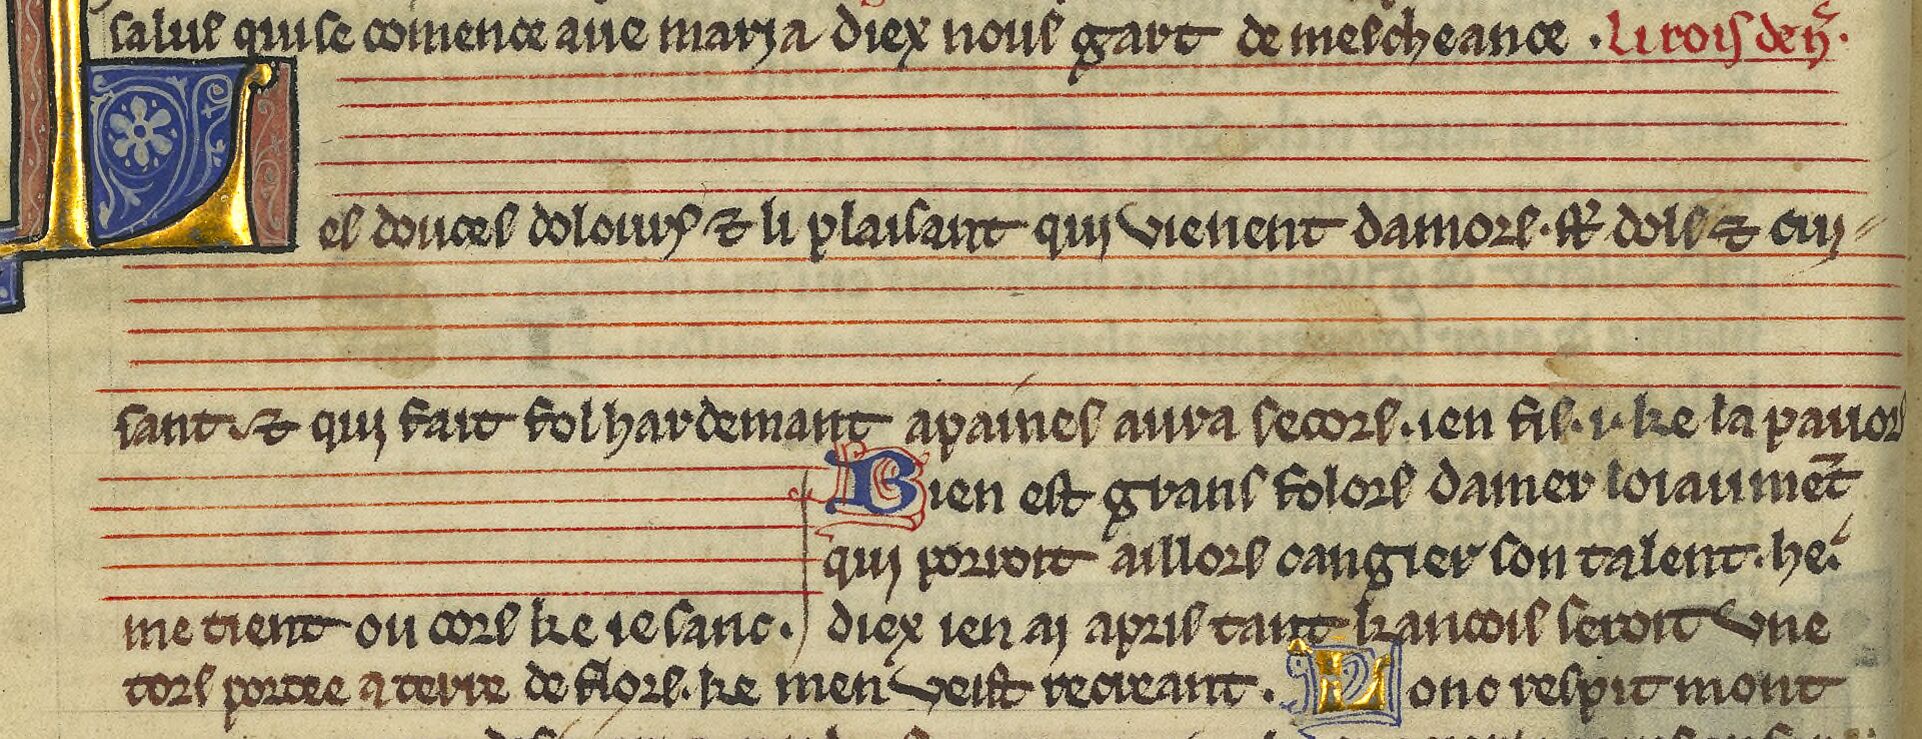 salus qui se comence aue maria diex nous gart de mescheance . li rois de n̄.
Les douces dolours ⁊ li plaisant qui vienent damors . st̄ dols ⁊ cui⸗
sant . ⁊ qui fait fol hardemant apaines aura secors . ien fis .i. ke la pauors
Bien est grans folors damer loiaumēt
qui porroit aillors cangier son talent . he.
me tient ou cors ke ie sanc . diex ien ai apris tant francois seroit vne
tors portee a terre de flors . ke men veist recreant . Lonc respit mont